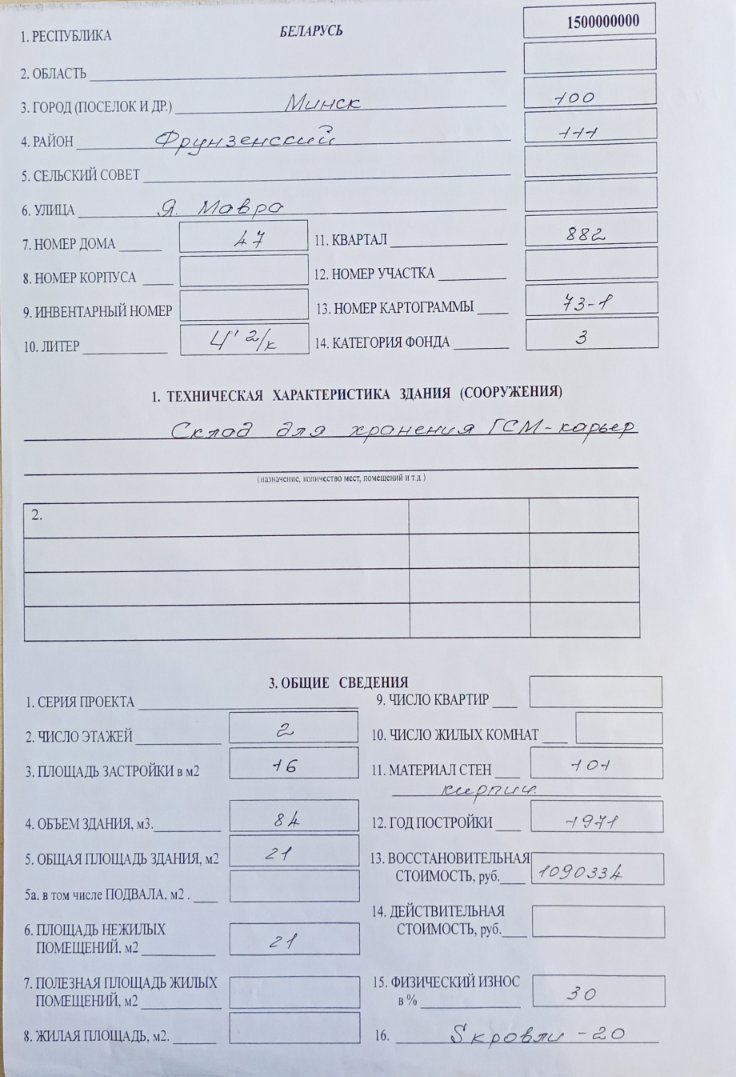 1. РЕСПУБЛИКА БЕЛАРУСЬ 1500000000
2. ОБЛАСТЬ
3. ГОРОД (ПОСЕЛОК И ДР.) Минск 100
4. РАЙОН Фрунзенский 111
5. СЕЛЬСКИЙ СОВЕТ
6. УЛИЦА Я. Мавра
7. НОМЕР ДОМА 47 11. КВАРТАЛ 882
8. НОМЕР КОРПУСА 12. НОМЕР УЧАСТКА
9. ИНВЕНТАРНЫЙ НОМЕР 13. НОМЕР КАРТОГРАММЫ 73-1
10. ЛИТЕР Ц' 2/к 14. КАТЕГОРИЯ ФОНДА 3
1. ТЕХНИЧЕСКАЯ ХАРАКТЕРИСТИКА ЗДАНИЯ (СООРУЖЕНИЯ)
Склад для хранения ГСМ-карьер
(назначение, количество мест, помещений и т.д.)
2.
3. ОБЩИЕ СВЕДЕНИЯ
1. СЕРИЯ ПРОЕКТА 9. ЧИСЛО КВАРТИР
2. ЧИСЛО ЭТАЖЕЙ 2 10. ЧИСЛО ЖИЛЫХ КОМНАТ
3. ПЛОЩАДЬ ЗАСТРОЙКИ в м2 16 11. МАТЕРИАЛ СТЕН 101
кирпич.
4. ОБЪЕМ ЗДАНИЯ, м3. 84 12. ГОД ПОСТРОЙКИ 1971
5. ОБЩАЯ ПЛОЩАДЬ ЗДАНИЯ, м2 21 13. ВОССТАНОВИТЕЛЬНАЯ
СТОИМОСТЬ, руб. 1090334
5а. в том числе ПОДВАЛА, м2 .
6. ПЛОЩАДЬ НЕЖИЛЫХ
ПОМЕЩЕНИЙ, м2 21
14. ДЕЙСТВИТЕЛЬНАЯ
СТОИМОСТЬ, руб.
7. ПОЛЕЗНАЯ ПЛОЩАДЬ ЖИЛЫХ
ПОМЕЩЕНИЙ, м2
15. ФИЗИЧЕСКИЙ ИЗНОС
в % 30
8. ЖИЛАЯ ПЛОЩАДЬ, м2. 16. S кровли - 20